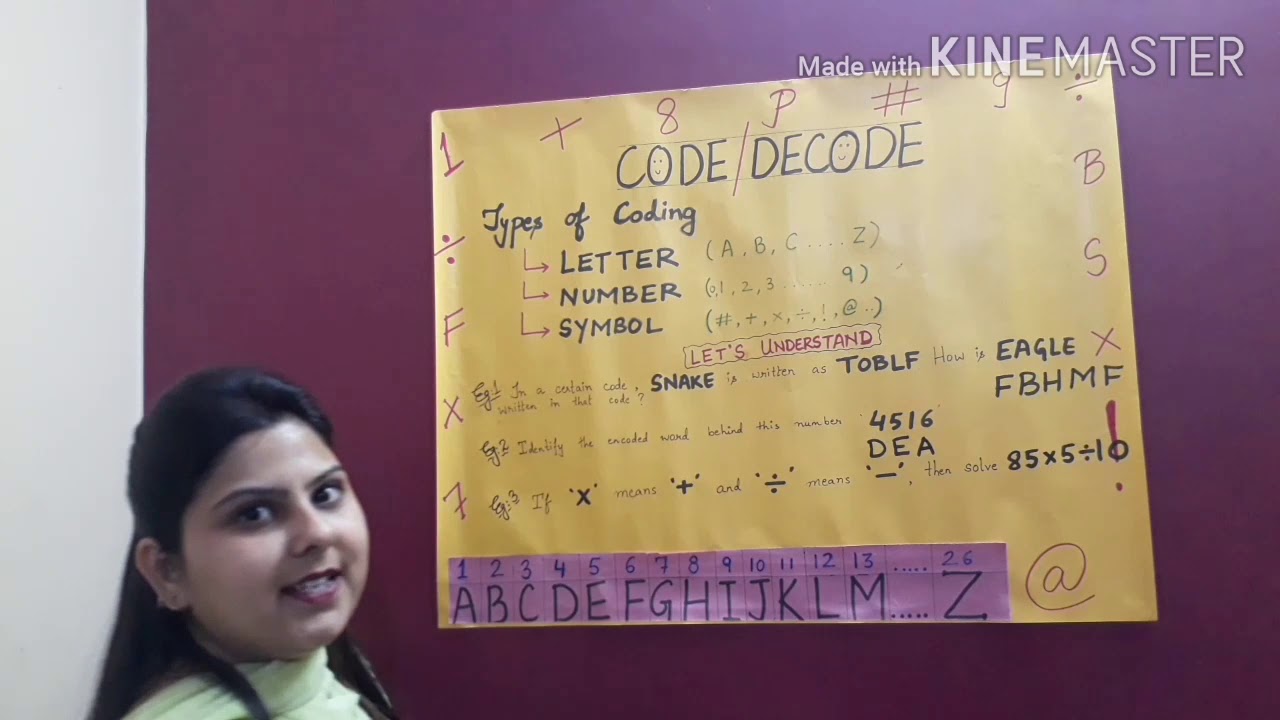 Made with KINEMASTER
1 + 8 P # 9 ÷
CODE/DECODE
B
Types of Coding
÷
LETTER (A, B, C .... Z)
S
NUMBER (0,1, 2, 3 ...... 9)
F
SYMBOL (#, +, ×, ÷, !, @ ..)
LET'S UNDERSTAND
X
Eg:1 In a certain code, SNAKE is written as TOBLF How is EAGLE
written in that code? FBHMF
X
Eg:2 Identify the encoded word behind this number 4516
DEA
!
7
Eg:3 If 'x' means '+' and '÷' means '—', then solve 85x5÷10
1 2 3 4 5 6 7 8 9 10 11 12 13 ..... 26
A B C D E F G H I J K L M ..... Z
@